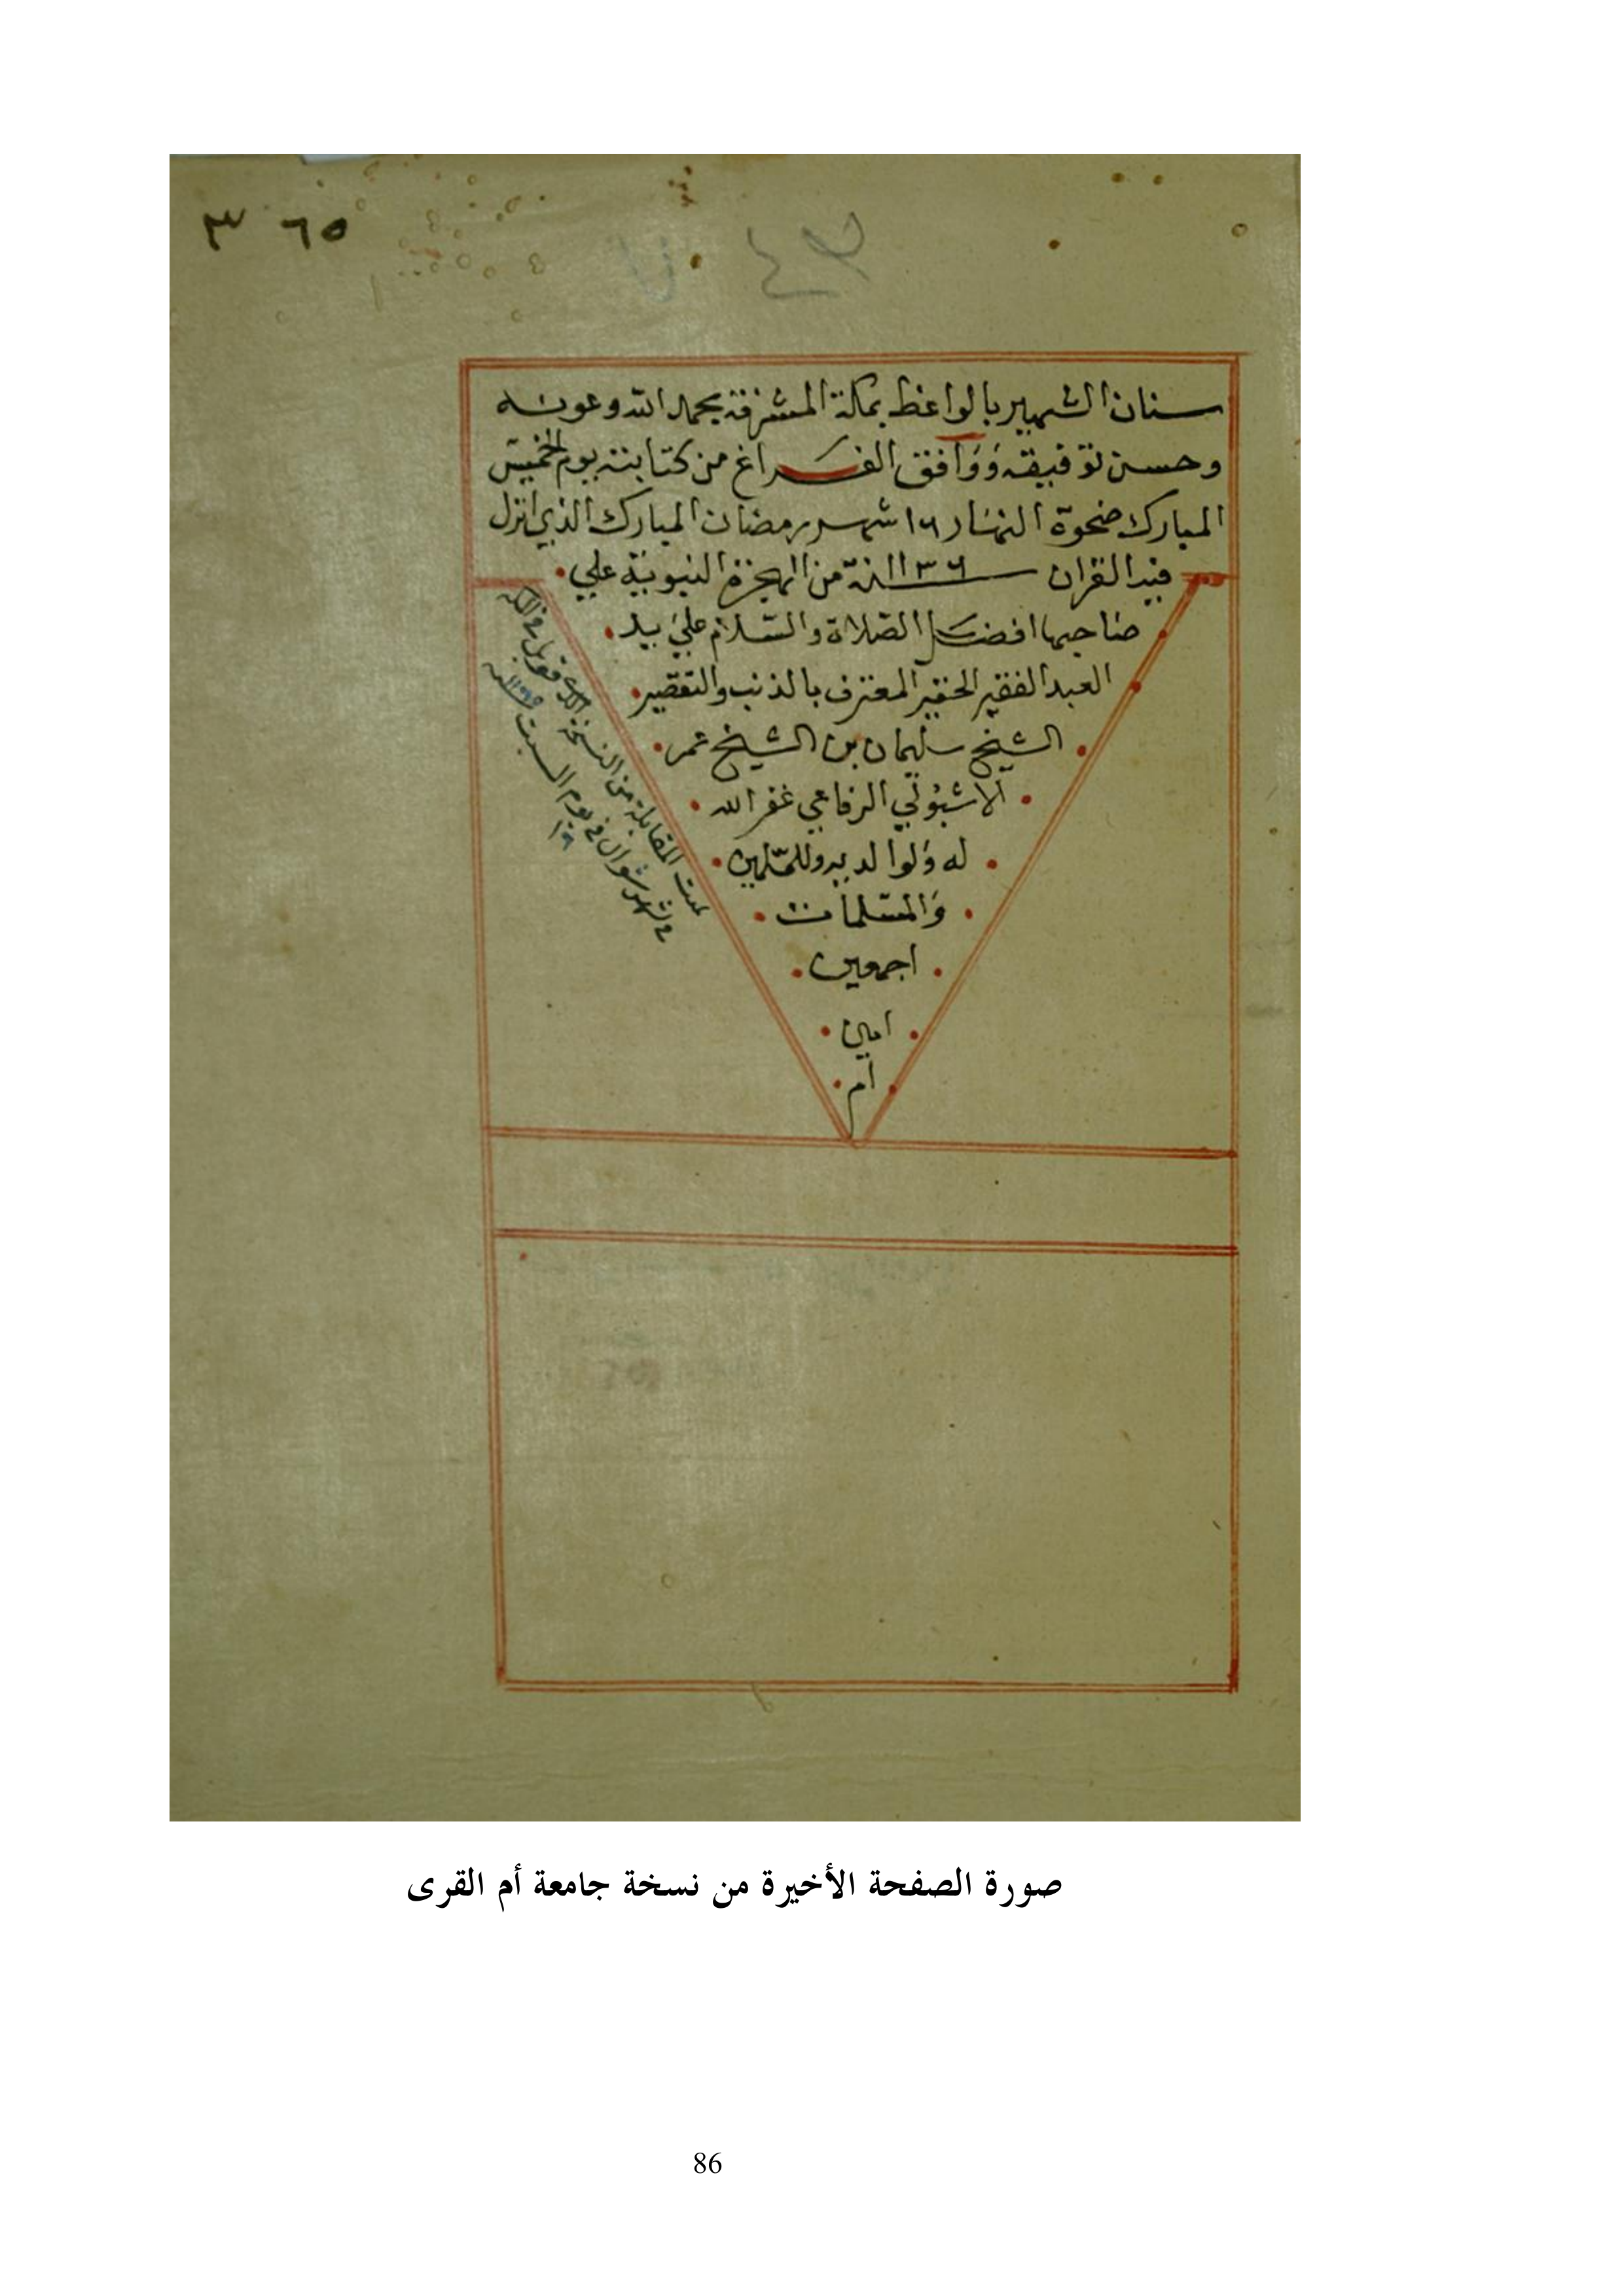 ٣٦٥
سنان الشهير بالواعظ بمكة المشرفة بحمد الله وعونه
وحسن توفيقه ووافق الفراغ من كتابته يوم الخميس
المبارك ضحوة النهار ١٦ شهر رمضان المبارك الذي انزل
فيه القران سنة من الهجرة النبوية علي
صاحبها افضل الصلاة والسلام علي يد
العبد الفقير الحقير المعترف بالذنب والتقصير
الشيخ سليمان بن الشيخ عمر
الرفاعي غفر الله
له ولوالديه وللمسلمين
والمسلمات
اجمعين
امين
ام
تمت المقابلة من النسخة
في شهر شوال في يوم السبت
صورة الصفحة الأخيرة من نسخة جامعة أم القرى
86